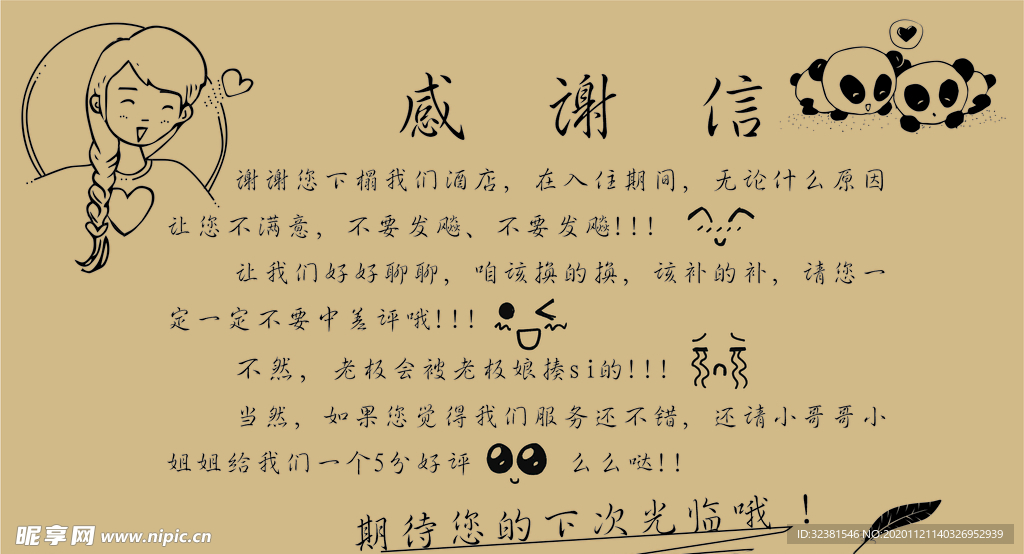 感谢信
谢谢您下榻我们酒店，在入住期间，无论什么原因
让您不满意，不要发飚、不要发飚!!!
让我们好好聊聊，咱该换的换，该补的补，请您一
定一定不要中差评哦!!!
不然，老板会被老板娘揍si的!!!
当然，如果您觉得我们服务还不错，还请小哥哥小
姐姐给我们一个5分好评 么么哒!!
期待您的下次光临哦！
昵享网 www.nipic.cn
ID:32381546 NO:20201121140326952939